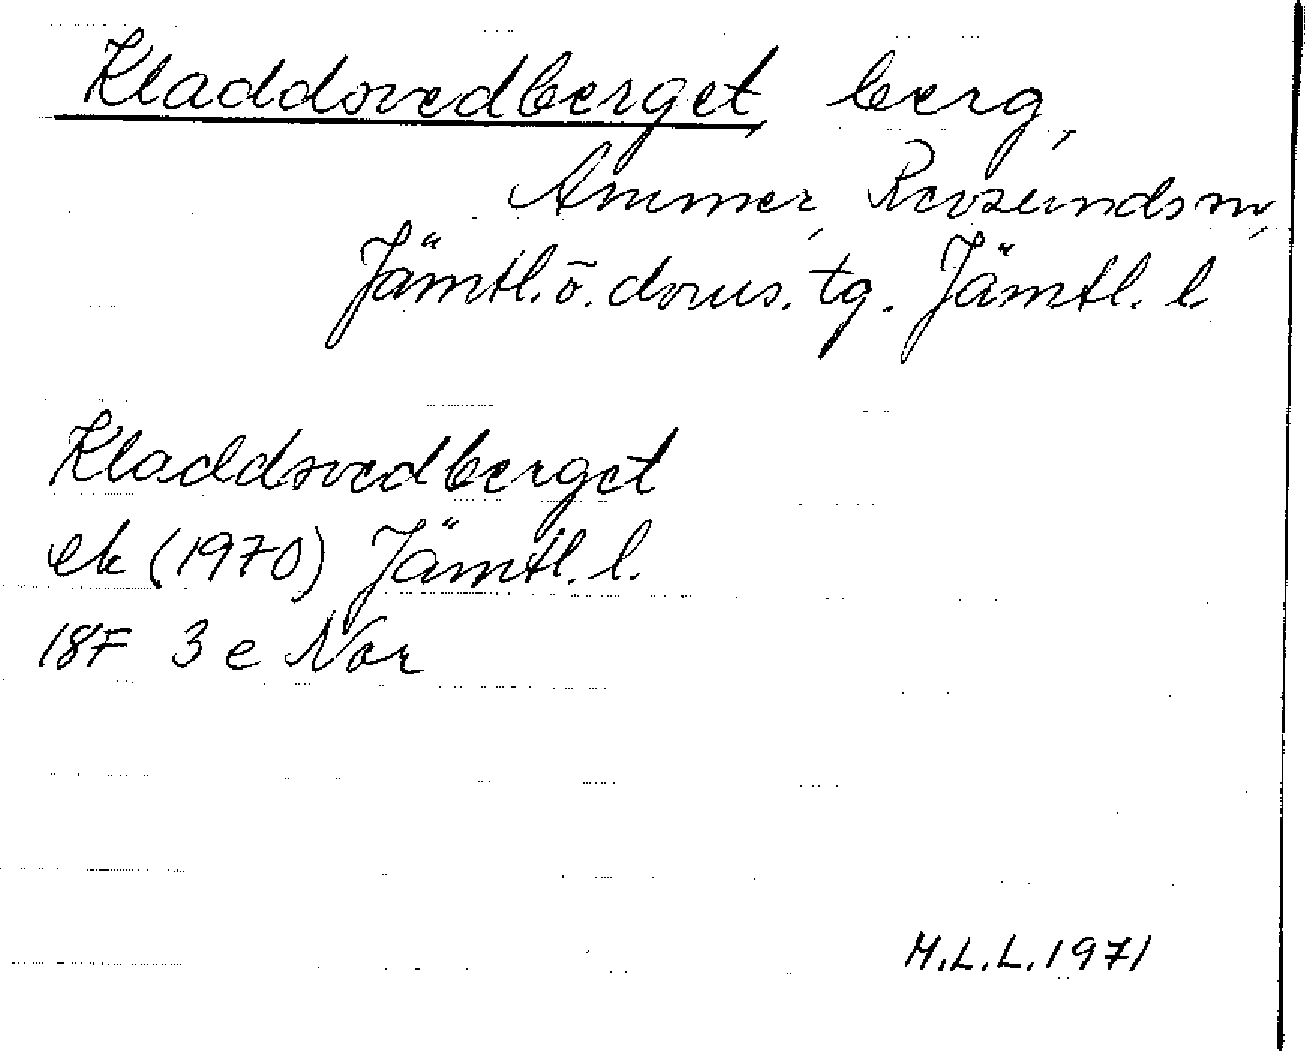 Kladdsvedberget, berg,
Ammer, Revsunds sn,
Jämtl. ö. doms. tg. Jämtl. l
Kladdsvedberget
ek (1970) Jämtl. l.
18F 3e Nor
M.L.L. 1971